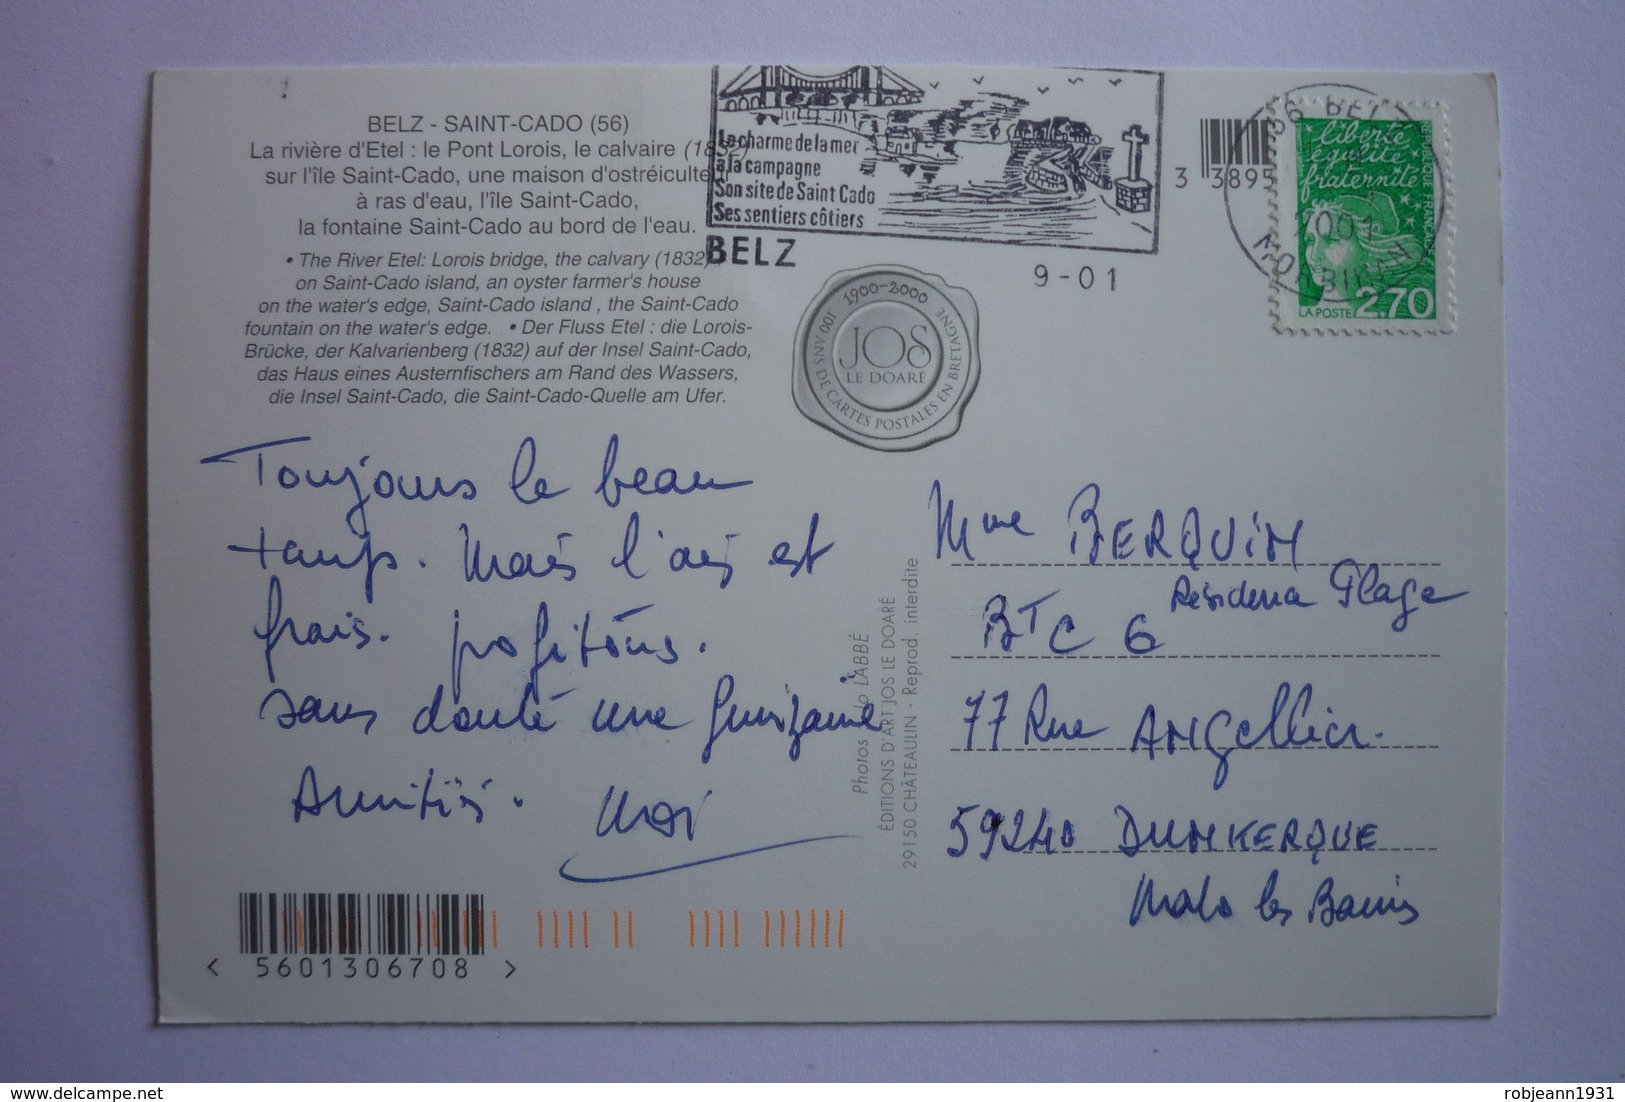 BELZ - SAINT-CADO (56)
La rivière d'Etel : le Pont Lorois, le calvaire (1832)
sur l'île Saint-Cado, une maison d'ostréiculteur
à ras d'eau, l'île Saint-Cado,
la fontaine Saint-Cado au bord de l'eau.
• The River Etel: Lorois bridge, the calvary (1832)
on Saint-Cado island, an oyster farmer's house
on the water's edge, Saint-Cado island, the Saint-Cado
fountain on the water's edge. • Der Fluss Etel : die Lorois-
Brücke, der Kalvarienberg (1832) auf der Insel Saint-Cado,
das Haus eines Austernfischers am Rand des Wassers,
die Insel Saint-Cado, die Saint-Cado-Quelle am Ufer.
Le charme de la mer
à la campagne
Son site de Saint Cado
Ses sentiers côtiers
BELZ
9-01
3 3895
56 BELZ
2001
MORBIHAN
liberté
égalité
fraternité
RÉPUBLIQUE FRANÇAISE
LA POSTE 2,70
1900-2000
JOS
LE DOARÉ
100 ANS DE CARTES POSTALES EN BRETAGNE
Toujours le beau
temps. Mais l'air est
frais. profitons.
sans doute une quinzaine
Amitiés. Moi
Photos Jo LABBÉ
ÉDITIONS D'ART JOS LE DOARÉ
29150 CHÂTEAULIN - Reprod. interdite
Mme BERQUIN
Résidence Plage
BTC 6
77 Rue ANGELLIER.
59240 DUNKERQUE
Malo les Bains
< 5601306708 >
delcampe.net
robjeann1931